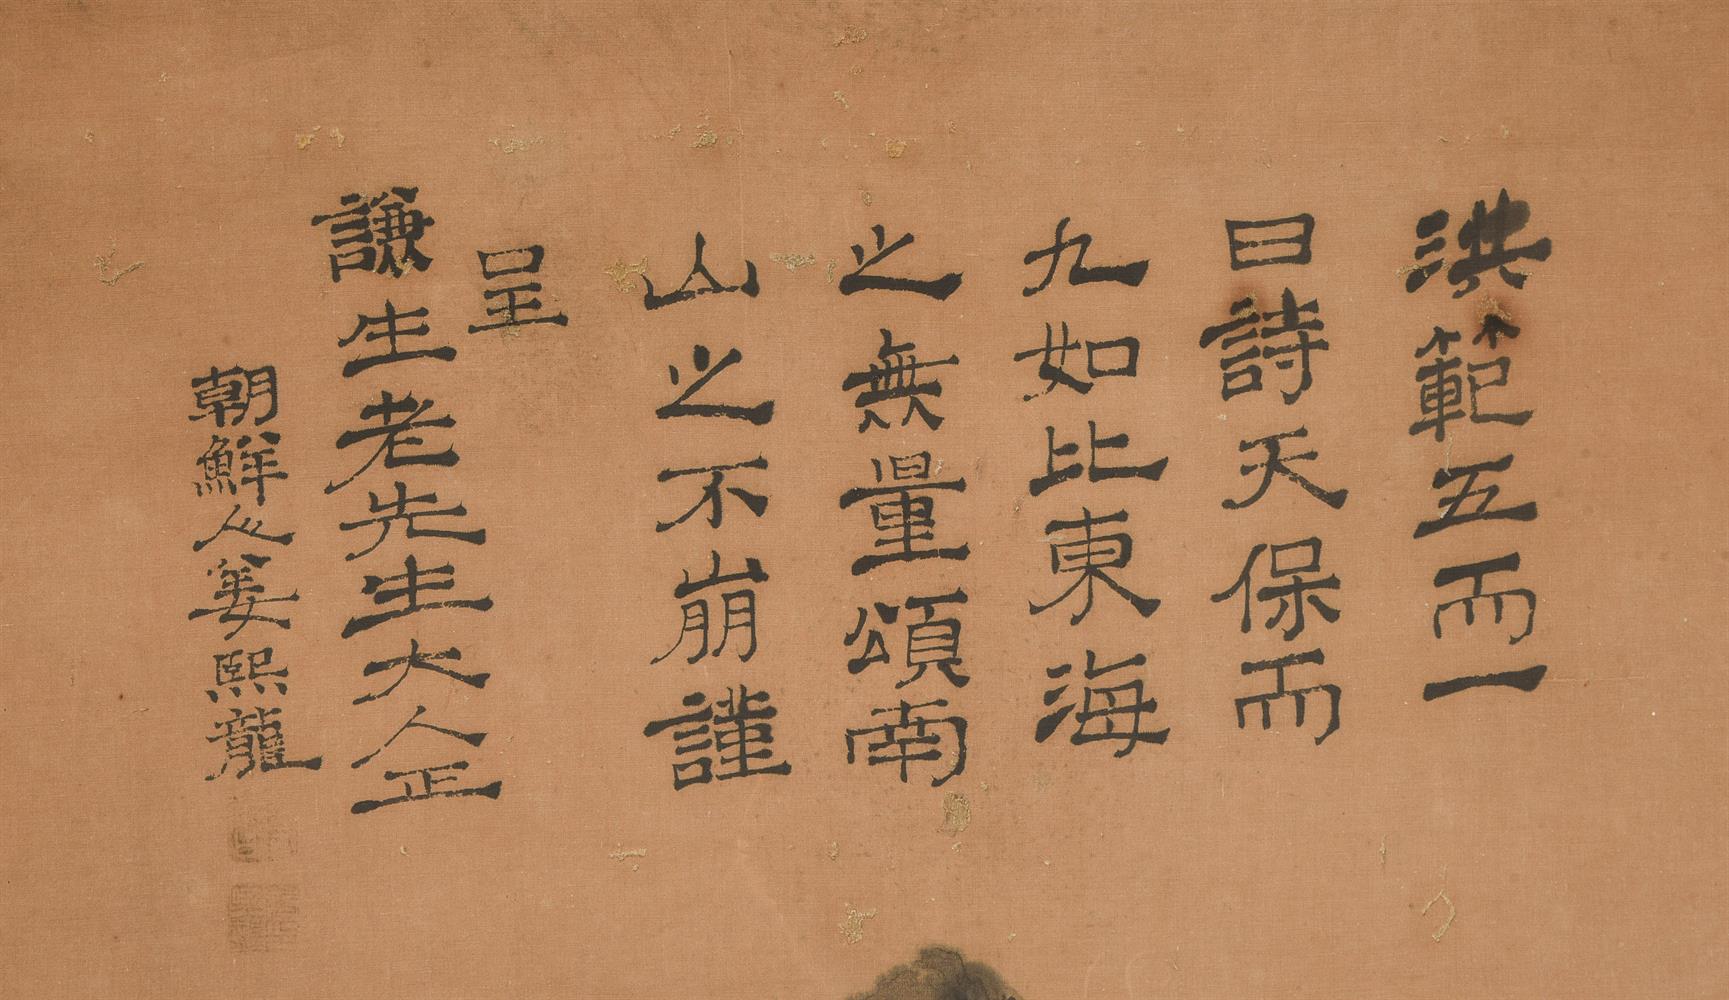 洪範五而一
曰詩天保而
九如比東海
之無量頌南
山之不崩謹
呈
謙生老先生大人正
朝鮮人姜熙龍